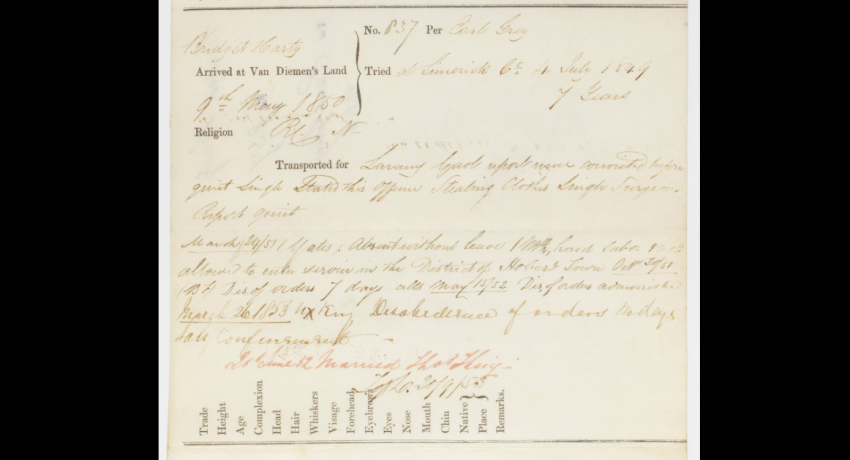 No. 837 Per Earl Grey
Bridget Harty
Arrived at Van Diemen's Land
Tried at Limerick Co. 4 July 1849
7 Years
9th May 1850
Religion RC N
Transported for Larceny Gaol report never convicted before
quiet Single Stated this Offence Stealing Clothes Single Surgeon
Report quiet
March / Yates / Absent without leave 1 Mth hard labor & not
allowed to enter service in the District of Hobart Town Octr 30/51
Dis of orders 7 days cells May 15/52 Dis of orders admonished
26 1853 Vx King Disobedience of orders days
Confinement
Married Thos King
20/9/55
Trade
Height
Age
Complexion
Head
Hair
Whiskers
Visage
Forehead
Eyebrows
Eyes
Nose
Mouth
Chin
Native Place
Remarks.